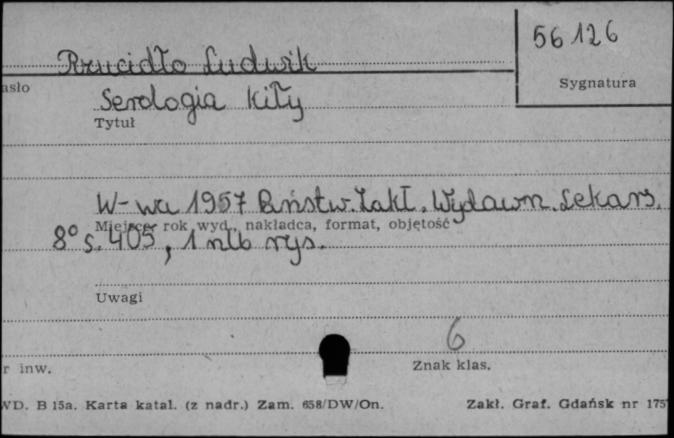 56126
Rzucidło Ludwik
Sygnatura
asło
Serologia kiły
Tytuł
W-wa 1957 Państw. Zakł. Wydawn. Lekars.
Miejsce, rok wyd., nakładca, format, objętość
8° s. 405, 1 nlb rys.
Uwagi
6
r inw.
Znak klas.
WD. B 15a. Karta katal. (z nadr.) Zam. 658/DW/On.
Zakł. Graf. Gdańsk nr 175